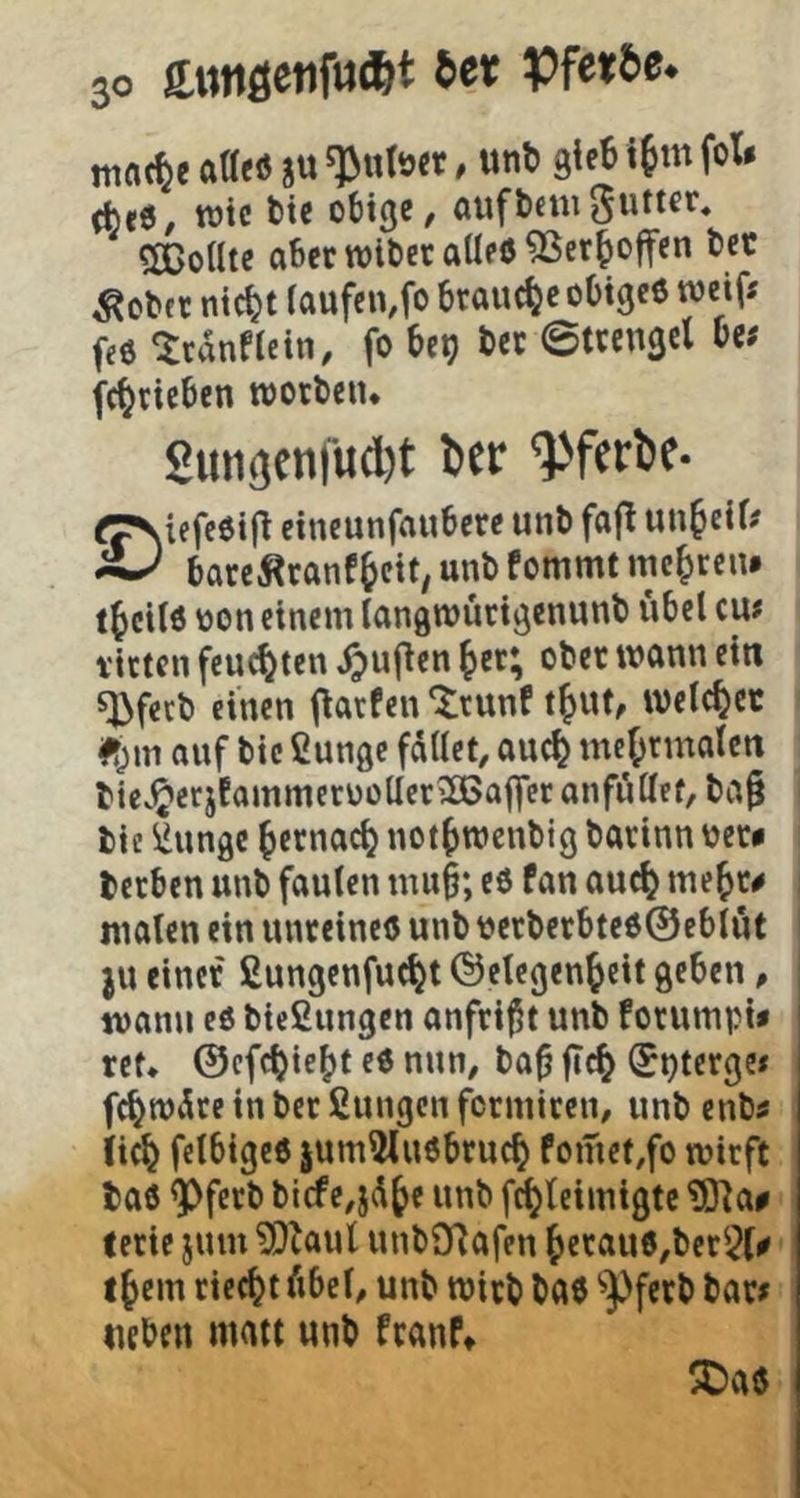 30 Lungensucht der Pferde.
mache alles zu Pulver, und gieb ihm sol-
ches, wie die obige, auf dem Futter.
Wollte aber wider alles Verhoffen der
Koder nicht laufen, so brauche obiges weis-
ses Tränklein, so bey der Strengel be-
schrieben worden.
Lungensucht der Pferde.
Diese s ist eine unsaubere und fast unheil-
bare Krankheit, und kommt mehren-
theils von einem langwürigen und übel cu-
rirten feuchten Husten her; oder wann ein
Pferd einen starken Trunk thut, welcher
ihm auf die Lunge fället, auch mehrmalen
die Herzkammer voller Wasser anfüllet, daß
die Lunge hernach nothwendig darinn ver-
derben und faulen muß; es kan auch mehr-
malen ein unreines und verderbtes Geblüt
zu einer Lungensucht Gelegenheit geben,
wann es die Lungen anfrißt und korumpi-
ret. Geschieht es nun, daß sich Eyterge-
schwäre in der Lungen formiren, und end-
lich selbiges zum Ausbruch kom̄et, so wirft
das Pferd dicke, zähe und schleimigte Ma-
terie zum Maul und Nasen heraus, der A-
them riecht übel, und wird das Pferd dar-
neben matt und krank.
Das